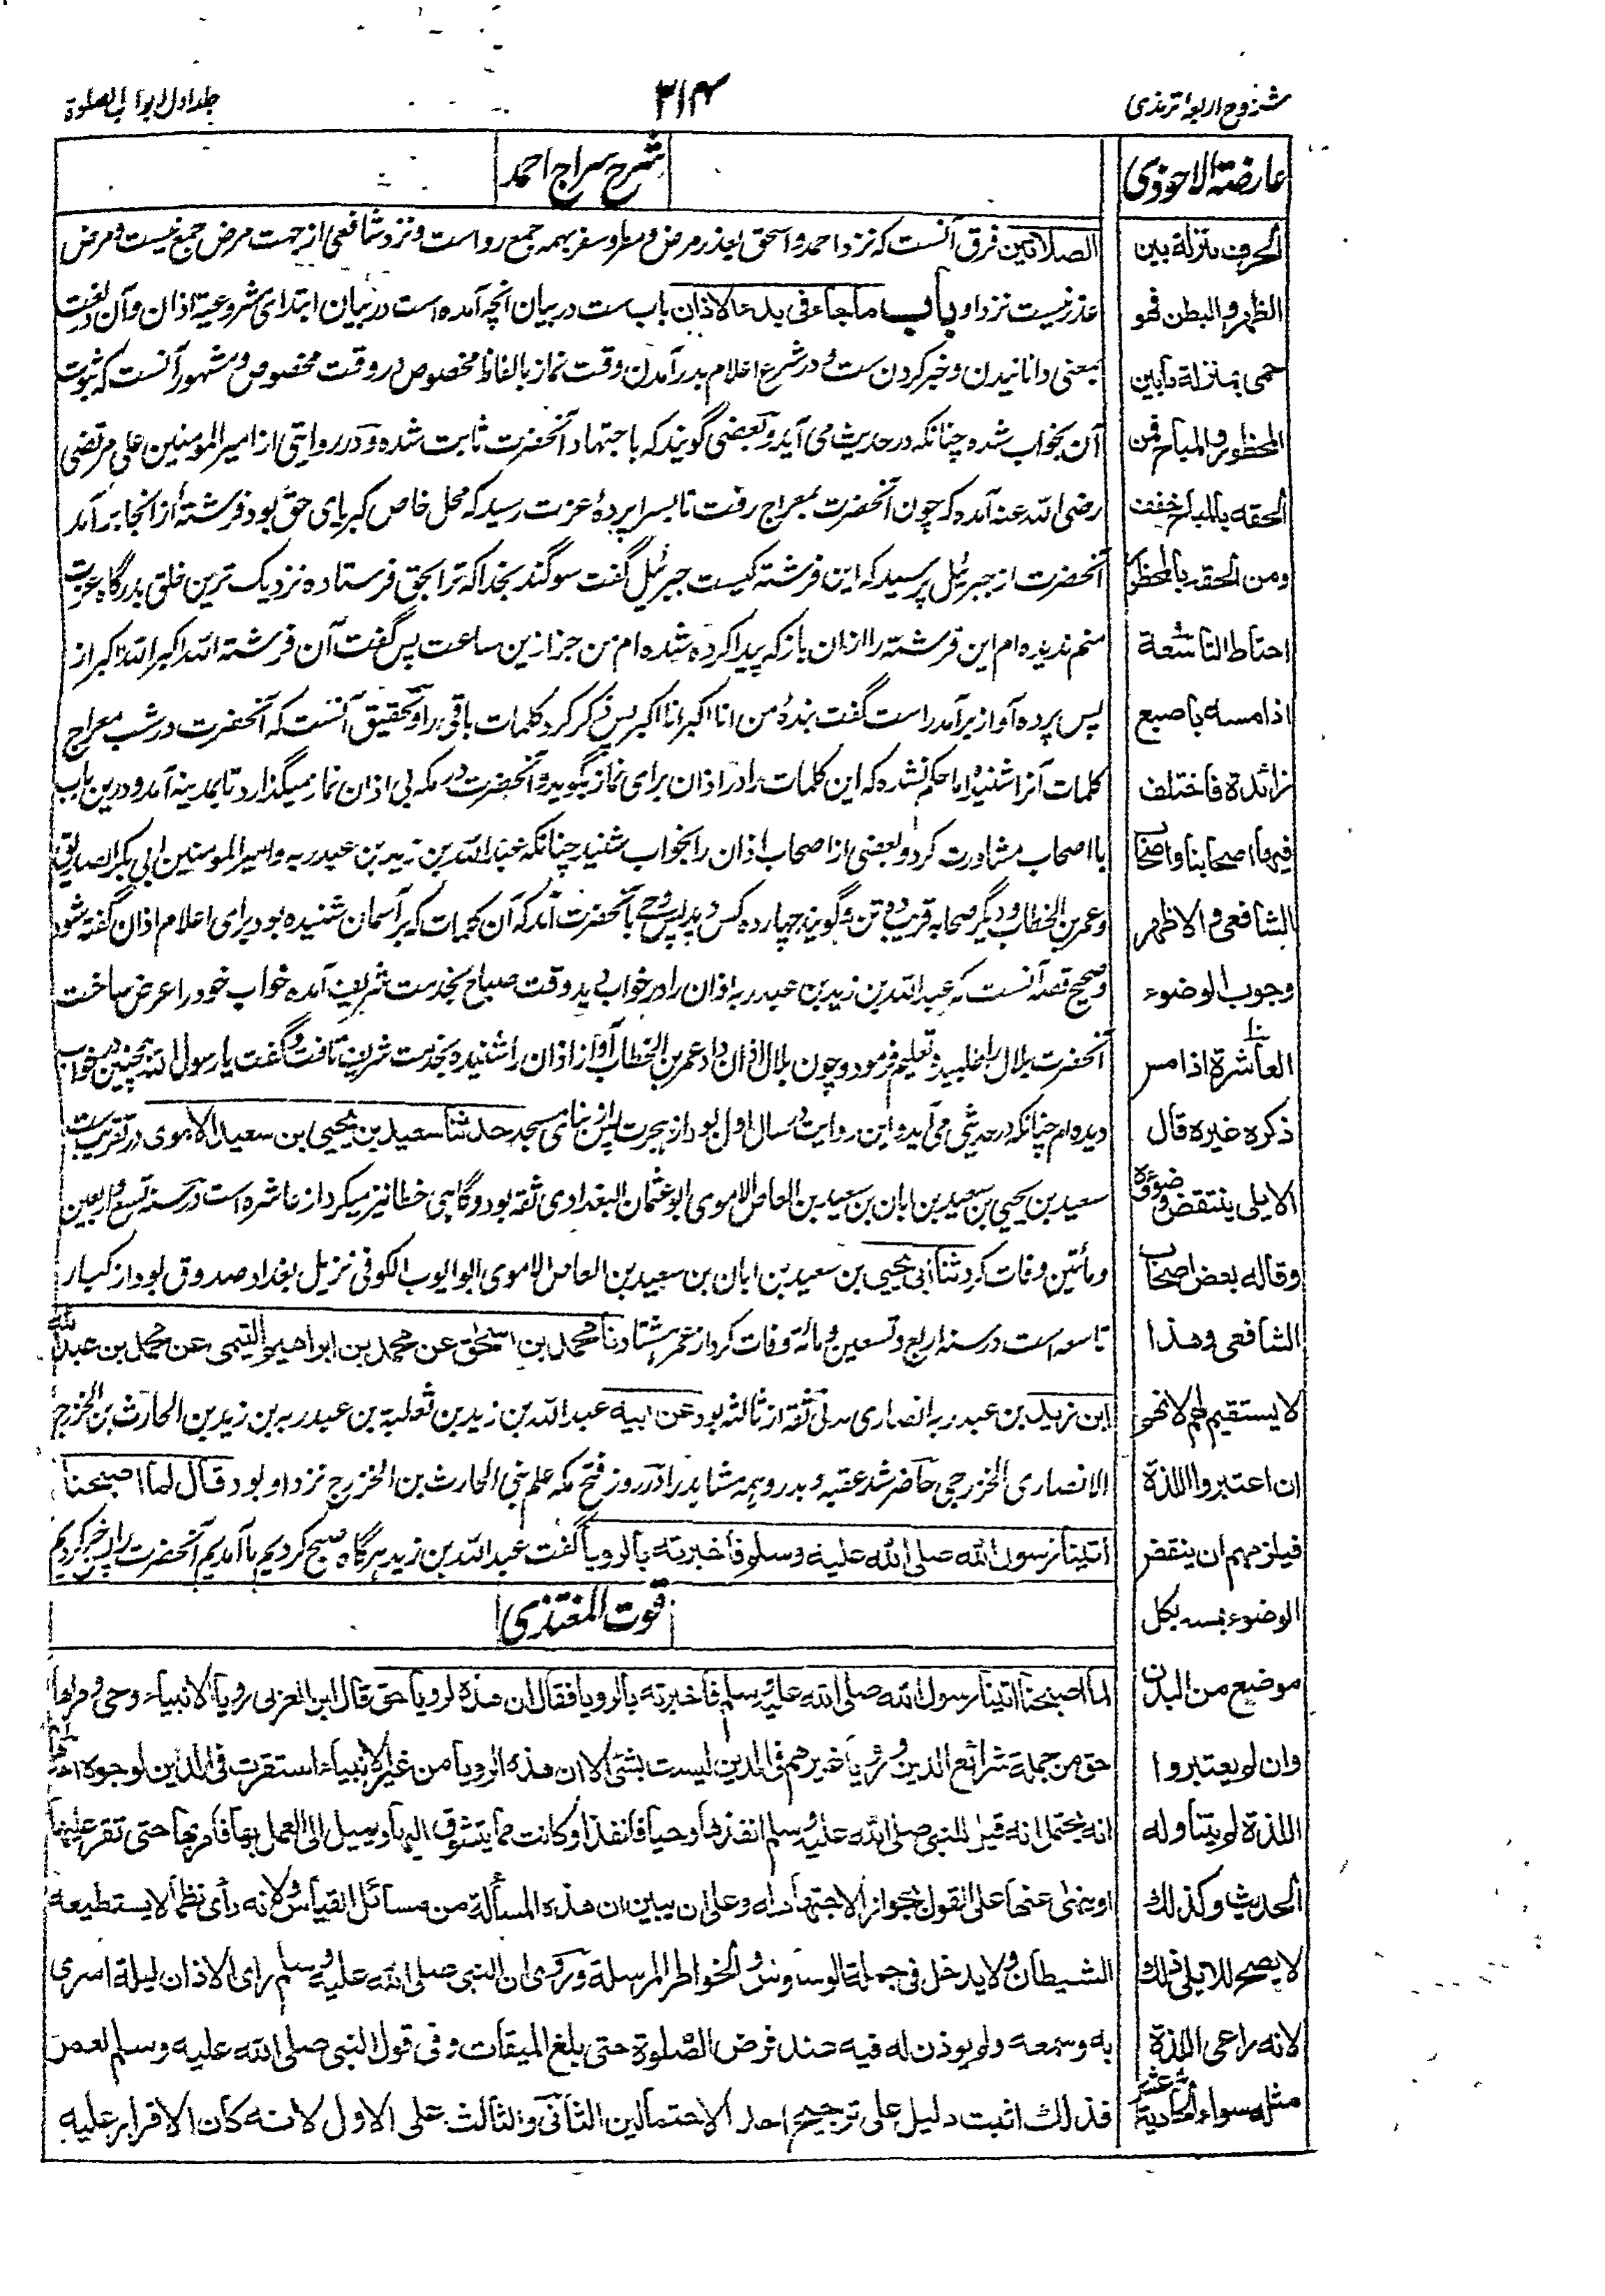 شروح اربعه ترمذی
۳۱۴
جلد اول ابواب الصلوة
عارضة الاحوذی
الحرف بمنزلة بين
الظهر والبطن فهو
حمى بمنزلة ما بين
المحظور والمباح فمن
الحقه بالمباح خفف
ومن الحقه بالمحظور
احتاط التاسعة
اذا مسه باصبع
زائدة فاختلف
فيها اصحابنا واصحاب
الشافعى والاظهر
وجوب الوضوء
العاشرة اذا مس
ذكره غيره قال
الايلى ينتقض وضوءه
وقاله بعض اصحاب
الشافعى وهذا
لا يستقيم لهم لانهم
ان اعتبروا اللذة
فيلزمهم ان ينقض
الوضوء بمسه بكل
موضع من البدن
وان لم يعتبروا
اللذة لم يتناوله
الحديث وكذلك
لا يصح للايلى ذلك
لانه راعى اللذة
مثله سواء الحادية عشر
شرح سراج احمد
الصلاتين فرق آنست که نزد احمد واسحق بعذر مرض ومطر وسفر همه جمع رواست ونزد شافعی از جهت مرض جمع نیست ومرض
عذر نیست نزد او باب ما جاء فی بدء الاذان باب ست در بیان آنچه آمده است در بیان ابتدای مشروعیة اذان وآن در لغت
بمعنی دانانیدن وخبر کردن ست ودر شرع اعلام بدرآمدن وقت نماز بالفاظ مخصوص در وقت مخصوص ومشهور آنست که ثبوت
آن بخواب شده چنانکه در حدیث می آید وبعضی گویند که باجتهاد آنحضرت ثابت شده ودر روایتی از امیر المومنین علی مرتضی
رضی الله عنه آمده که چون آنحضرت بمعراج رفت تا بسراپردهٔ عزت رسید که محل خاص کبریای حق بود فرشتهٔ از آنجا برآمد
آنحضرت از جبرئیل پرسید که این فرشته کیست جبرئیل گفت سوگند بخدا که ترا بحق فرستاده نزدیک ترین خلق بدرگاه عزت
منم ندیده ام این فرشته را ازان باز که پیدا کرده شده ام من جز ازین ساعت پس گفت آن فرشته الله اکبر الله اکبر از
پس پرده آواز برآمد راست گفت بندهٔ من انا اکبر انا اکبر پس ذکر کرد کلمات باقی را وتحقیق آنست که آنحضرت در شب معراج
کلمات آنرا شنید اما حکم نشده که این کلمات را در اذان برای نماز بگوید وآنحضرت در مکه بی اذان نماز میگذارد تا بمدینه آمد ودرین باب
با اصحاب مشاورت کرد وبعضی از اصحاب اذان را بخواب شنید چنانکه عبد الله بن زید بن عبد ربه وامیر المومنین ابی بکر الصدیق
وعمر بن الخطاب ودیگر صحابه قریب ده تن وگویند چهارده کس دیدند پس وحی بآنحضرت آمد که آن کلمات که بر آسمان شنیده بود برای اعلام اذان گفته شود
وصحیح قصه آنست که عبد الله بن زید بن عبد ربه اذان را در خواب دید وقت صباح بخدمت شریف آمده خواب خود را عرض ساخت
آنحضرت بلال را طلبیده تعلیم فرمود وچون بلال اذان داد عمر بن الخطاب آواز اذان را شنیده بخدمت شریف شتافت وگفت یا رسول الله همچنین در خواب
دیده ام چنانکه در حدیثی می آید واین روایت در سال اول بود از هجرت پس از بنای مسجد حدثنا سعید بن یحیی بن سعید الاموی در تقریب ست
سعید بن یحیی بن سعید بن ابان بن سعید بن العاص الاموی ابو عثمان البغدادی ثقه بود وگاهی خطا نیز میکرد از عاشره است در سنه تسع واربعین
ومأتین وفات کرد ثنا ابی یحیی بن سعید بن ابان بن سعید بن العاص الاموی ابو ایوب الکوفی نزیل بغداد صدوق بود از کبار
تاسعه است در سنه اربع وتسعین ومائة وفات کرد از عمر هشتاد نا محمد بن اسحق عن محمد بن ابراهیم التیمی عن محمد بن عبد الله
ابن زید بن عبد ربه انصاری مدنی ثقه از ثالثه بود عن ابیه عبد الله بن زید بن ثعلبة بن عبد ربه بن زید بن الحارث بن الخزرج
الانصاری الخزرجی حاضر شد عقبه وبدر وهمه مشاهد را در روز فتح مکه علم بنی الحارث بن الخزرج نزد او بود قال لما اصبحنا
اتینا رسول الله صلی الله علیه وسلم فأخبرته بالرویا گفت عبد الله بن زید هرگاه صبح کردیم ما آمدیم آنحضرت را پس خبر کردیم
قوت المغتذی
لما اصبحنا اتینا رسول الله صلی الله علیه وسلم فأخبرته بالرویا فقال ان هذه لرویا حق قال ابن العربی رویا الانبیاء وحی وامرها
حق من جملة شرائع الدین ورؤیا غیرهم فی الدین لیست بشئ الا ان هذه الرویا من غیر الانبیاء استقرت فی الدین لوجوه احدها
انه یحتمل انه قیل للنبی صلی الله علیه وسلم انفذها وحیا فانفذها او کانت مما یتشوق الیها ویمیل الی العمل بها فامر بها حتی تقر علیها
او ینهی عنها علی القول بجواز الاجتهاد له وعلی ان یبین ان هذه المسألة من مسائل القیاس ولانه رأى نظما لا یستطیعه
الشیطان ولا یدخل فی جملة الوساوس والخواطر المرسلة وروی ان النبی صلی الله علیه وسلم رای الاذان لیلة اسری
به وسمعه ولم یوذن له فیه عند فرض الصلوة حتی بلغ المیقات وفی قول النبی صلی الله علیه وسلم لعمر
فذلك اثبت دلیل علی ترجیح احد الاحتمالین الثانی والثالث علی الاول لانه کان الاقرار علیه